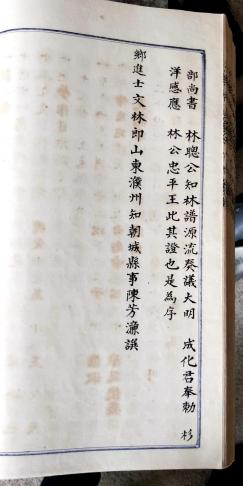 部尚書 林聰公知林譜源流癸議大明 成化君奉勅 杉
洋感應 林公忠平王此其證也是為序
鄉進士文林郎山東濮州知朝城縣事陳芳濂譔